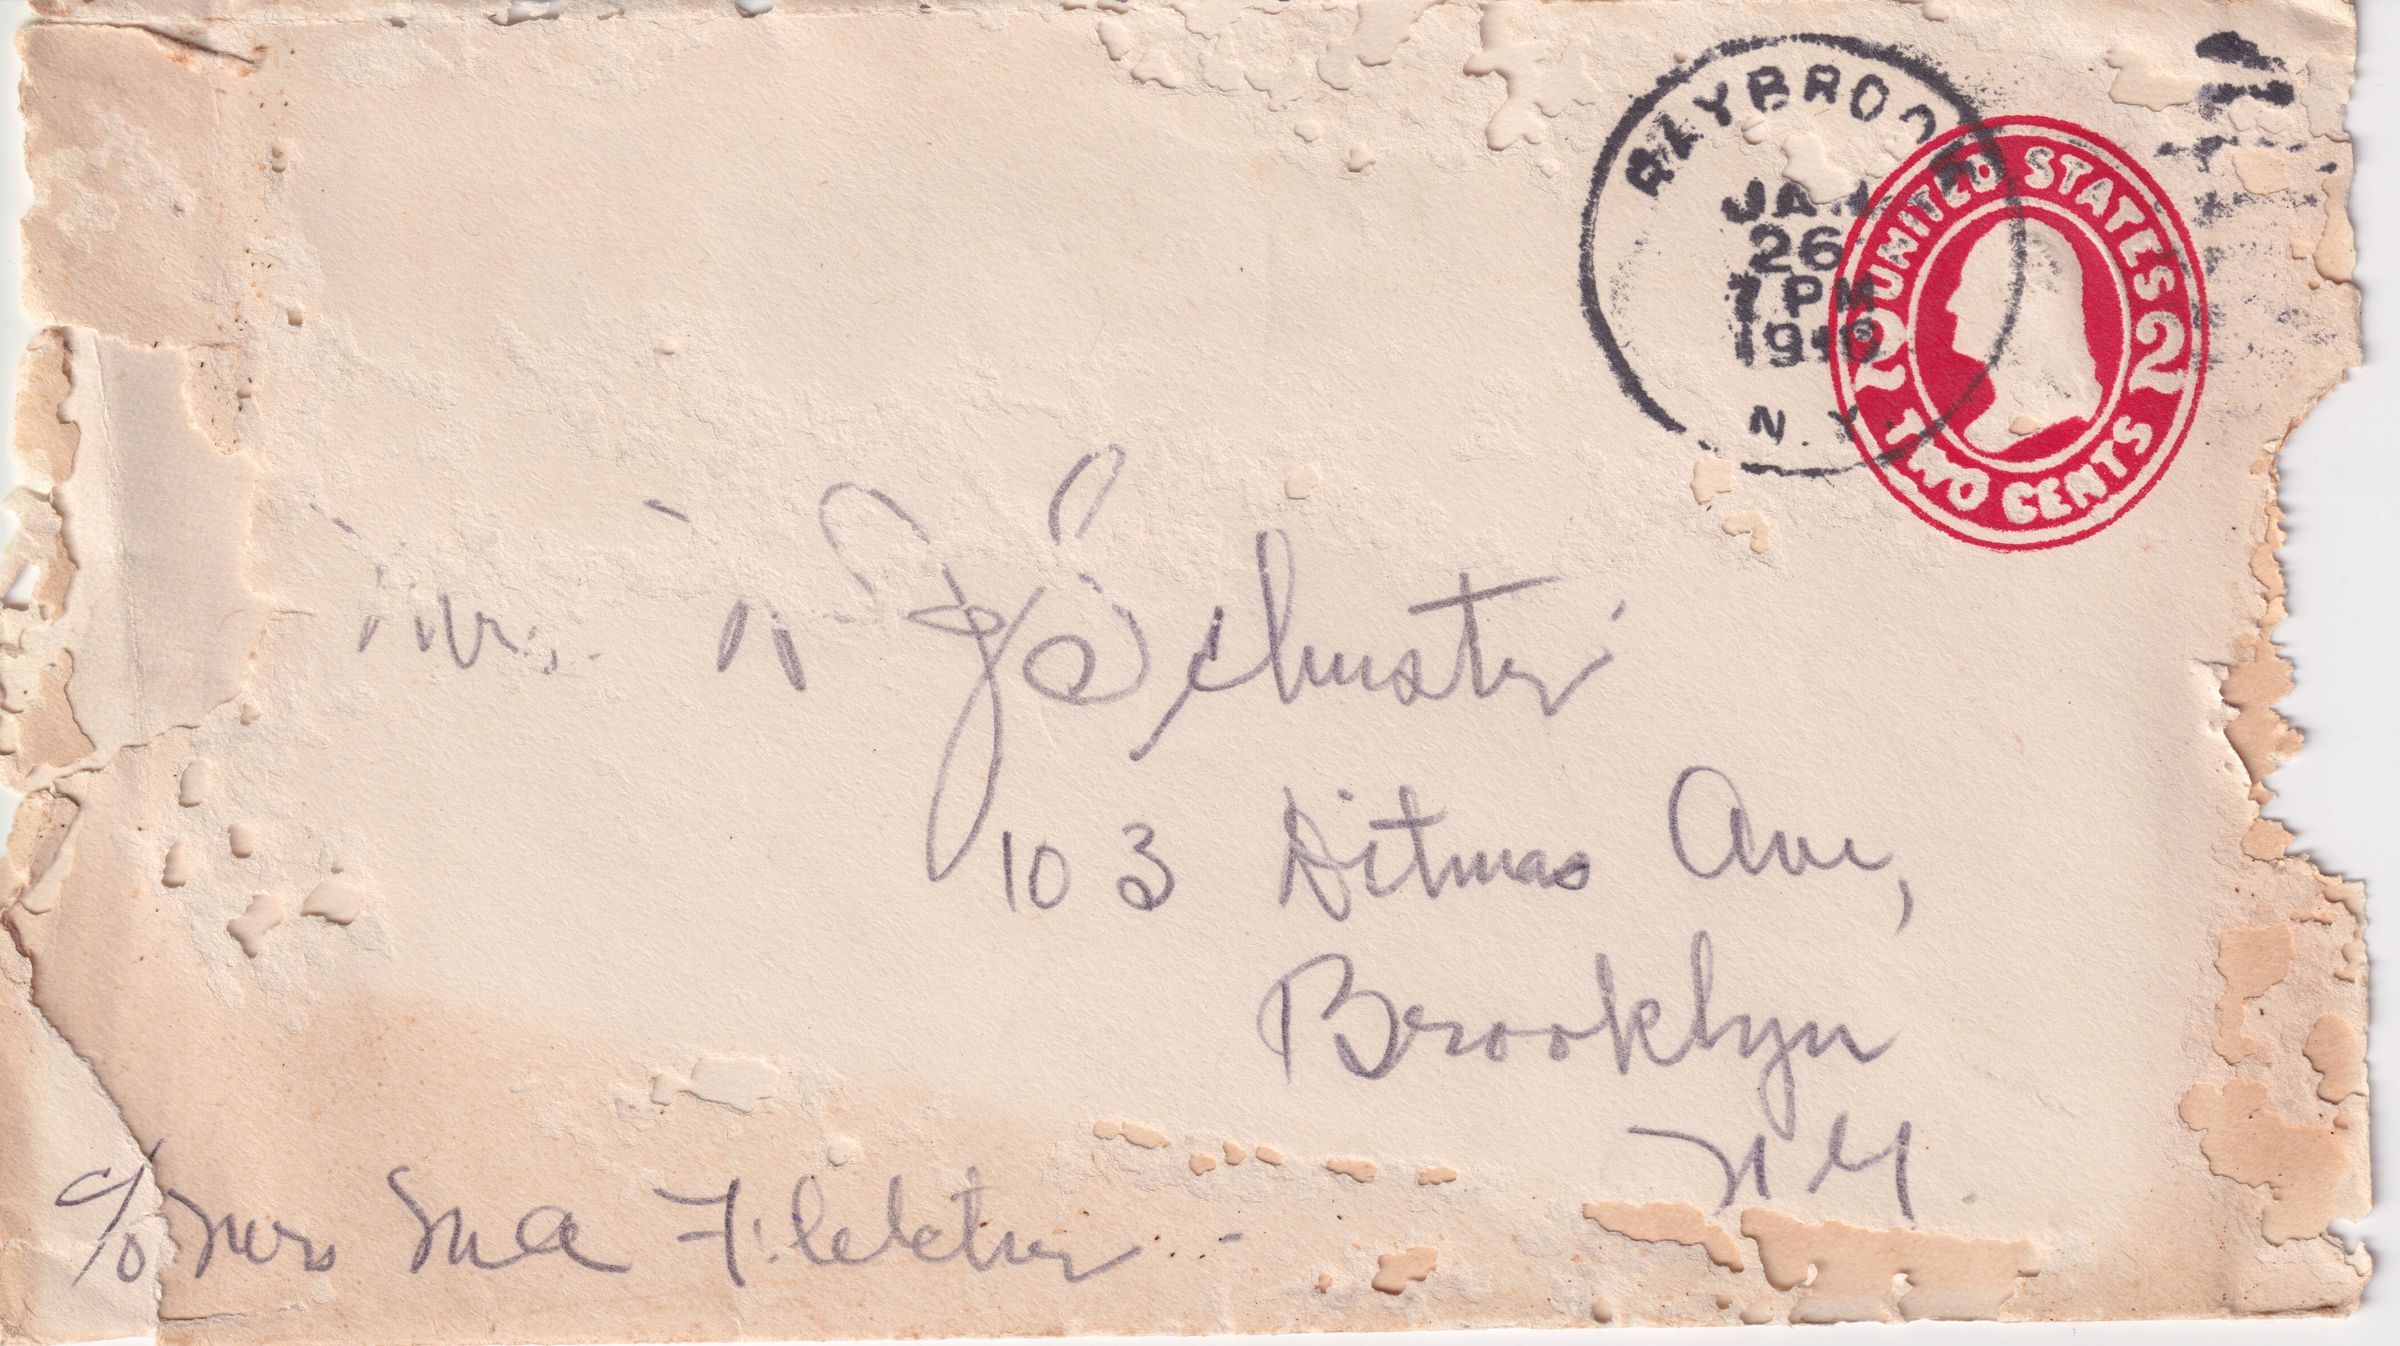 RAYBROO
JAN
26
7 PM
19
N.Y.
UNITED STATES
2 2
TWO CENTS
Mr. Schuster
103 Ditmas Ave,
Brooklyn
N Y.
c/o Mrs M A Fletcher